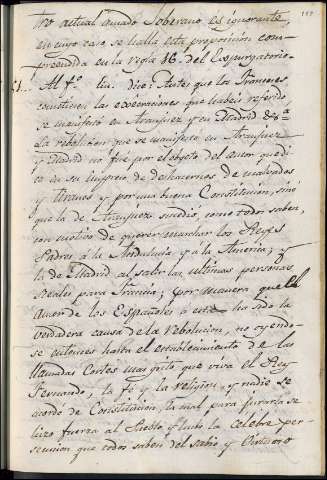 tro actual amado Soberano es ignorante,
en cuyo caso se halla esta proposicion com-
preendida en la regla 16. del Expurgatorio.
51. Al fº. lin. dice: Antes que los Franceses
las execraciones que habeis referido
se manifestó en Aranjuez y en Madrid &ª
La rebolucion que se manifestó en Aranjuez
y Madrid no fué por el objeto del autor que di-
ce en su impreso de deshacernos de malvados
y tiranos y por una buena Constitucion, sinó
que la de Aranjuez sucedio, como todos saben,
con motivo de querer marchar los Reyes
Padres á la Andalucia y á la America; y
la de Madrid al salir las ultimas personas
Reales para Francia; por manera que el
Amor de los Españoles á este ha sido la
verdadera causa de la rebolucion, no oyendo-
se entonces hasta el establecimiento de las
llamadas Cortes mas grito que viva el Rey
Fernando, la fé, y la religion, y nadie se
acordó de Constitucion, la qual para jurarla se
hizo fuerza al Pueblo y hubo la celebre per-
secucion que todos saben del sabio y Virtuoso